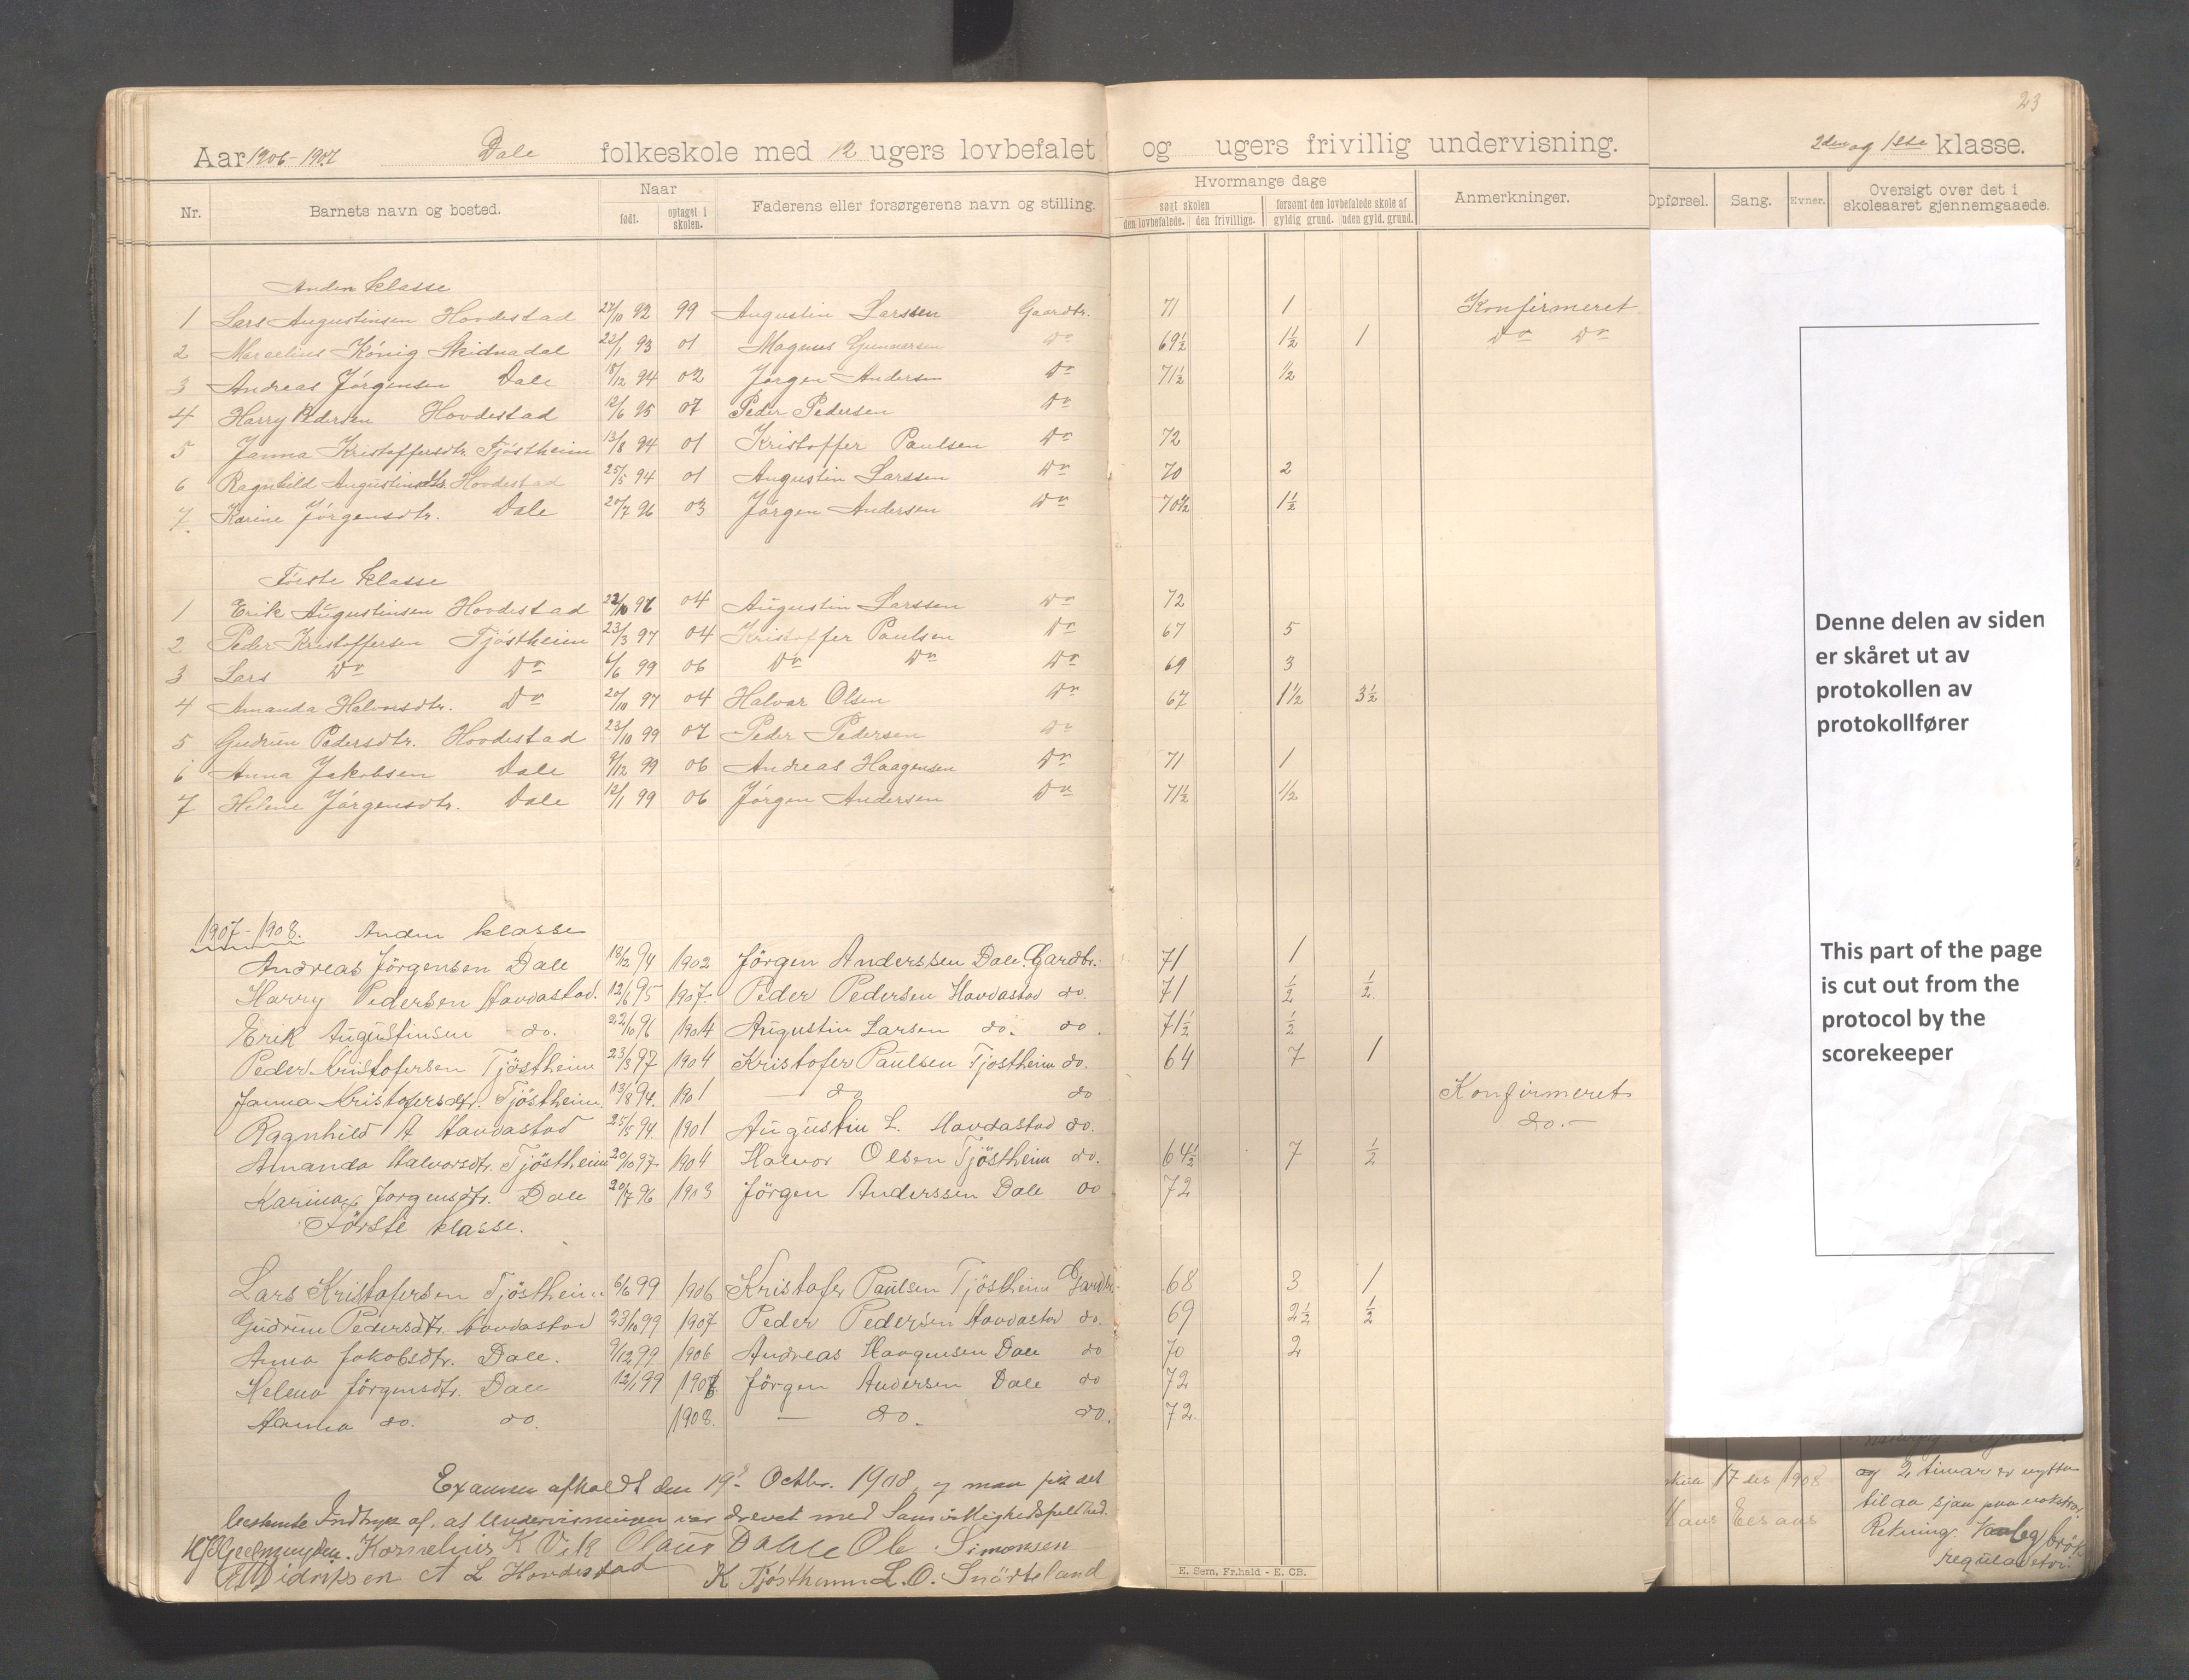 23
Aar 1906-1907 Dale folkeskole med 12 ugers lovbefalet og ugers frivillig undervisning. 2den og 1ste klasse.
Nr. Barnets navn og bosted. Naar født. optaget i skolen. Faderens eller forsørgerens navn og stilling. Hvormange dage søgt skolen den lovbefalede. den frivillige. forsømt den lovbefalede skole af gyldig grund. uden gyld. grund. Anmerkninger. Opførsel. Sang. Evner. Oversigt over det i skoleaaret gjennemgaaede.
Anden klasse
1 Lars Augustinsen Hovdestad 27/10 92 99 Augustin Larssen Gaardbr. 71 1 Konfirmeret
2 Marcelius König Skidnadal 22/1 93 01 Magnus Gunnarsen Do 69½ 1½ 1 Do Do
3 Andreas Jörgensen Dale 18/12 94 02 Jörgen Andersen Do 71½ ½
4 Harry Pedersen Hovdestad 12/6 95 07 Peder Pedersen Do
5 Janna Kristoffersdtr. Tjöstheim 13/8 94 01 Kristoffer Paulsen Do 72
6 Ragnhild Augustinsdtr. Hovdestad 25/5 94 01 Augustin Larssen Do 70 2
7. Karine Jörgensdtr. Dale 20/7 96 03 Jörgen Andersen Do 70½ 1½
Förste klasse
1 Erik Augustinsen Hovdestad 22/10 96 04 Augustin Larssen Do 72
2 Peder Kristoffersen Tjöstheim 23/3 97 04 Kristoffer Paulsen Do 67 5
3 Lars Do Do 6/6 99 06 Do Do Do 69 3
4 Amanda Halvorsdtr. Do 20/10 97 04 Halvar Olsen Do 67 1½ 3½
5 Gudrun Pedersdtr. Hovdestad 23/10 99 07 Peder Pedersen Do
6 Anna Jakobsen Dale 9/12 99 06 Andreas Haagensen Do 71 1
7 Helene Jörgensdtr. Dale 12/1 99 06 Jörgen Andersen Do 71½ ½
1907-1908. Anden klasse
Andreas Jörgensen Dale 18/12 94 1902 Jörgen Anderssen Dale. Gardbr. 71 1
Harry Pedersen Havdastad. 12/6 95 1907. Peder Pedersen Havdastad do. 71 ½ ½
Erik Augustinsen do. 22/10 96 1904 Augustin Larsen do. do. 71½ ½
Peder Kristofersen Tjöstheim 23/3 97 1904 Kristofer Paulsen Tjöstheim do. 64 7 1
Janna Kristofersdtr. Tjöstheim. 13/8 94. 1901 — do do Konfirmeret
Ragnhild A. Havdastad 25/5 94 1901 Augustin L. Havdastad do. do.-
Amanda Halvorsdtr. Tjöstheim 20/10 97. 1904 Halvor Olsen Tjöstheim do. 64½ 7 ½
Karina Jorgensdtr. Dale 20/7 96 1903 Jörgen Anderssen Dale do 72
Förste klasse.
Lars Kristofersen Tjöstheim 6/6 99 1906 Kristofer Paulsen Tjöstheim Gardbr. 68 3 1
Gudrun Pedersdtr. Havdastad 23/10 99 1907 Peder Pedersen Havdastad do. 69 2½ ½
Anna Jakobsdtr. Dale. 9/12 99 1906 Andreas Haagensen Dale do 70 2
Helena Jörgensdtr. Dale 12/1 99 1906 Jörgen Andersen Dale do 72
Hanna do. do. 1908. — do. do. 72.
Examen afholdt den 19. Octbr. 1908, og man fik det
bestemte Indtryk af, at Undervisningen var drevet med Samvittighedsfuldhed.
Kornelius K Vik Olaus Dahle Ole Simonsen
Didriksen A L Hovdestad K Tjöstheim L. O. Snörteland
E. Sem, Fr.hald - E. CB.
Denne delen av siden
er skåret ut av
protokollen av
protokollfører
This part of the page
is cut out from the
protocol by the
scorekeeper
17 des 1908
og 2 timar er nytta
til aa sjaa paa
Rekning. Vanleg brök
reguladetri.